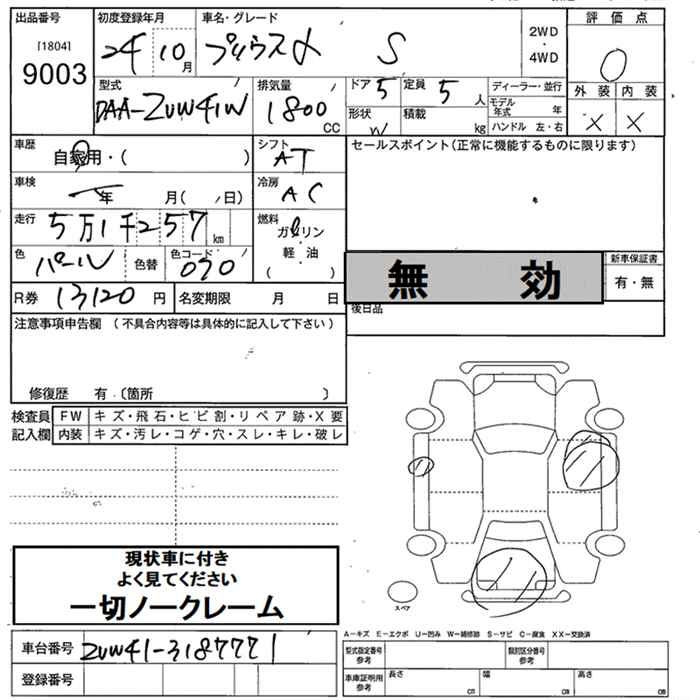 出品番号 初度登録年月 車名・グレード 2WD・4WD 評価点
[1804]
9003
24年 10月 プリウスα S
0
型式 排気量 ドア 5 定員 5人 ディーラー・並行 外装 内装
DAA-ZVW41W 1800CC 形状 W 積載 kg モデル年式 年 × ×
ハンドル 左・右
車歴 自家用・( ) シフト AT セールスポイント(正常に機能するものに限ります)
車検 年 月( 日) 冷房 AC
走行 5万1千257km 燃料 ガソリン・軽油( )
色 パール 色替 色コード 070 新車保証書
無効 有・無
R券 13120円 名変期限 月 日 後日品
注意事項申告欄(不具合内容等は具体的に記入して下さい)
修復歴 有・(箇所 )
検査員記入欄 FW キズ・飛石・ヒビ割・リペア跡・X要
内装 キズ・汚レ・コゲ・穴・スレ・キレ・破レ
現状車に付き
よく見てください
一切ノークレーム
スペア
A-キズ E-エクボ U-凹み W-補修跡 S-サビ C-腐食 XX-交換済
車台番号 ZVW41-3187771 型式指定番号参考 類別区分番号参考
登録番号 車庫証明用参考 長さ cm 幅 cm 高さ cm